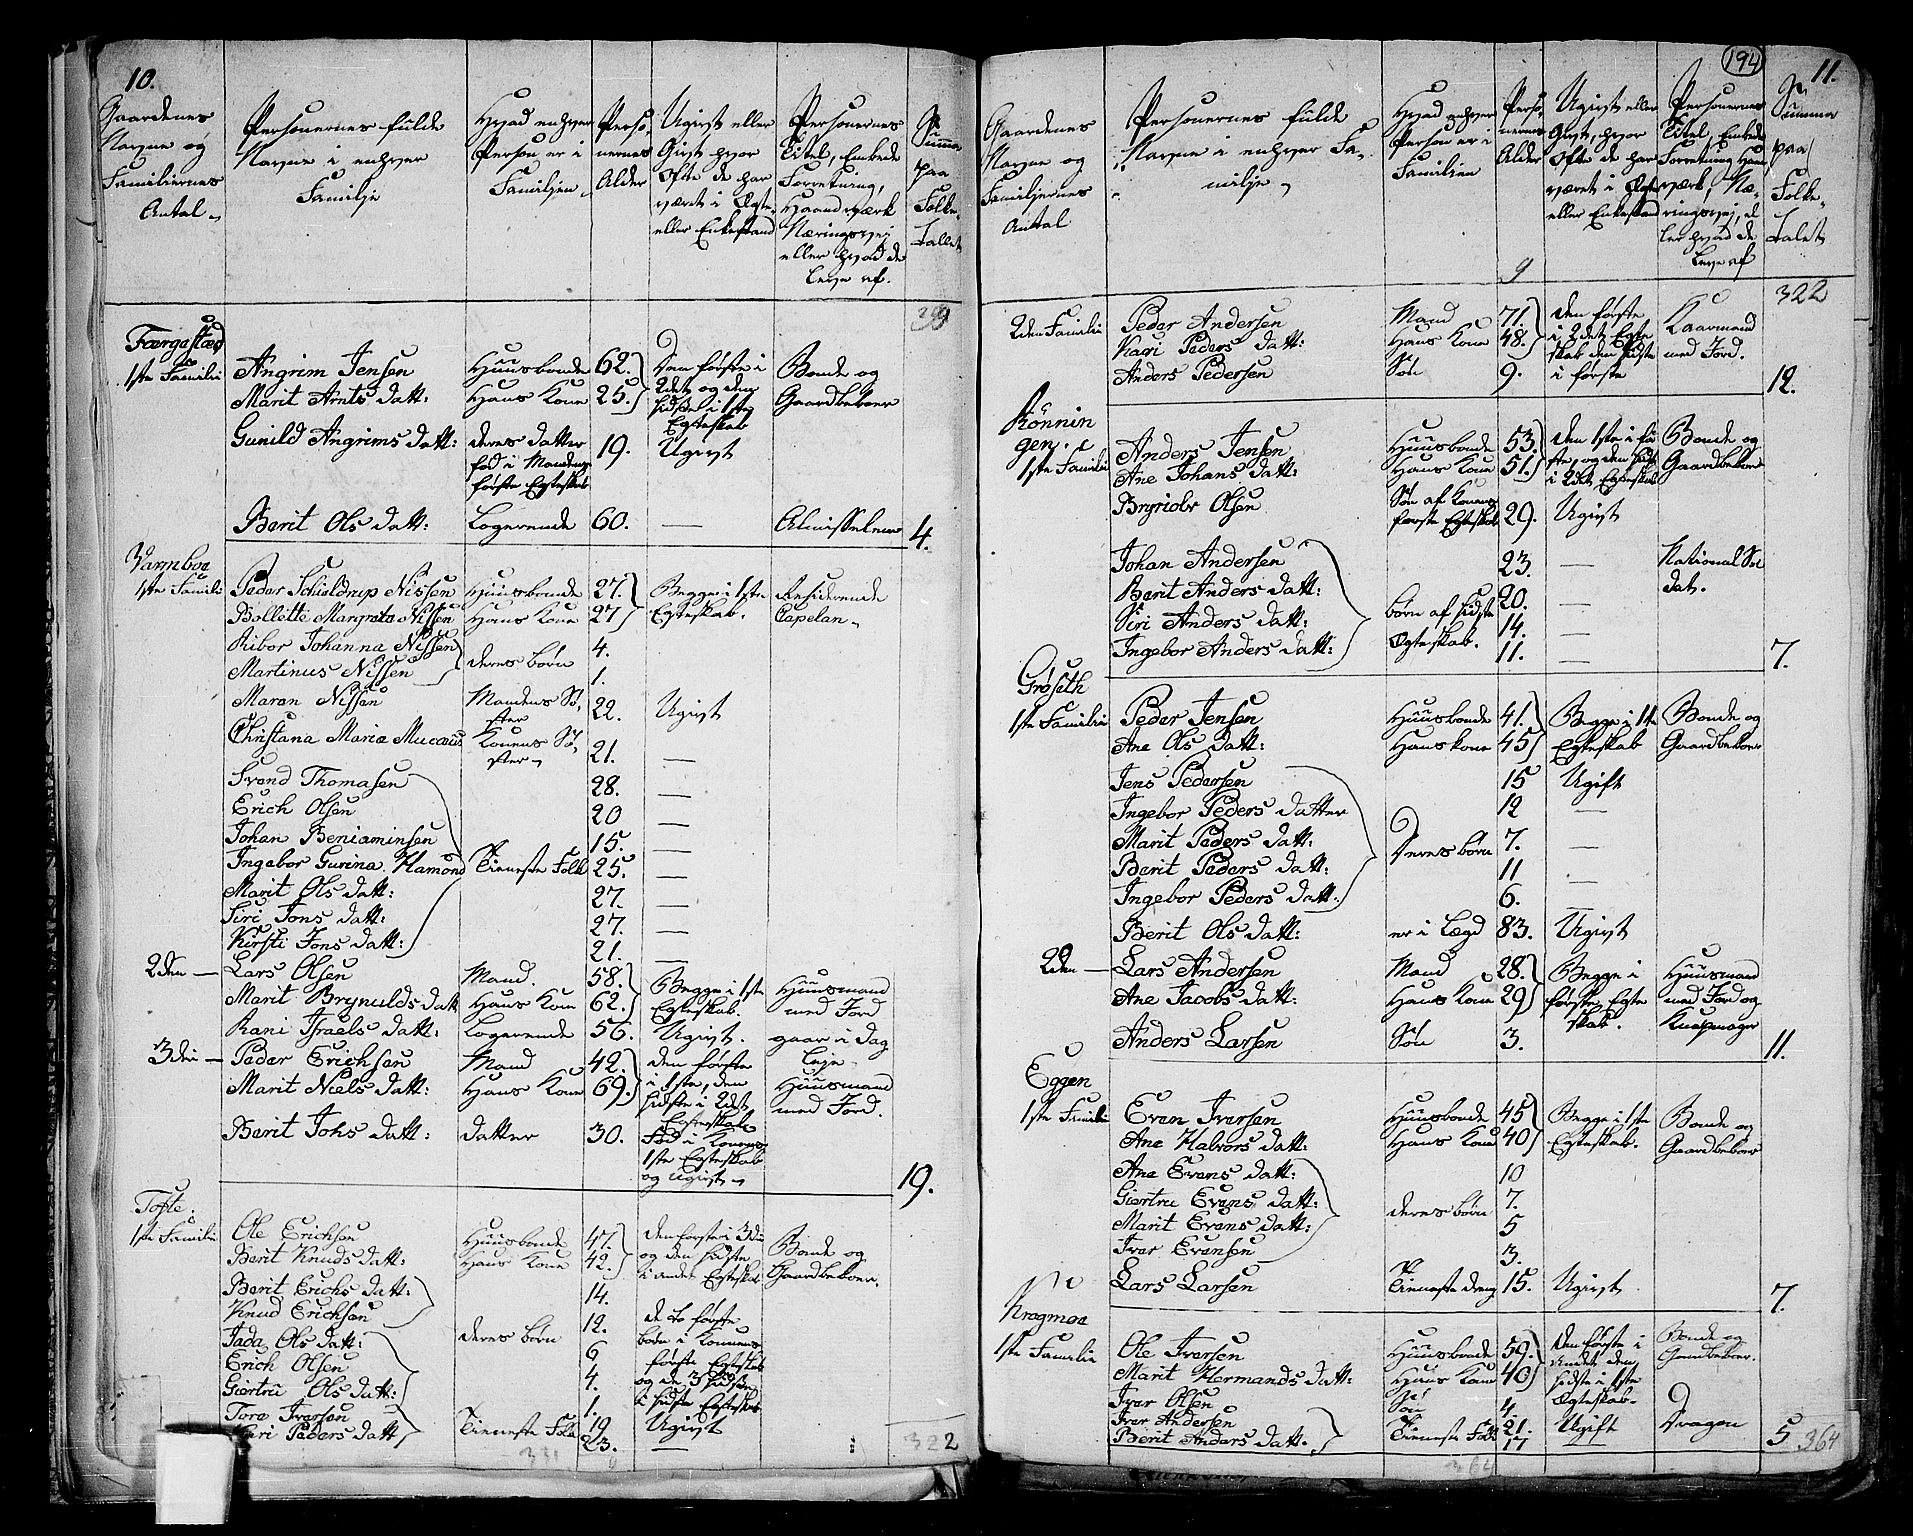 10.
Gaardenes Navne og Familiernes Antal
Personernes fulde Navne i enhver Familje
Hvad enhver Person er i Familjen
Personernes Alder
Ugivt eller Givt, hvor Ofte de har været i Ægte, eller Enkestand
Personernes Titel, Embede Forretning, Haandværk Næringsvej eller hvad de Leve af.
Summa paa Folke Tallet
Færgestad
1ste Familie
Angrim Jensen Huusbonde 62. Den første i 2det og den sidste i 1ste Egteskab Bonde og Gaardbeboer
Marit Arnts Datt: Hans Kone 25.
Gunild Angrims Datt: deres datter fød i Mandens første Egteskab 19. Ugivt
Berit Ols Datt: Logerende 60. — Almisselem 4.
Varmboe
1ste Familie Peder Schieldrup Nissen Huusbonde 27. Begge i 1ste Egteskab. Residerende Capelan
Bollette Margreta Nissen Hans Kone 27
Ribor Johanna Nissen deres børn 4.
Martinus Nissen 1.
Maren Nissen Mandens Søster 22. Ugivt
Christana Maria Mucæus Konens Søster 21. —
Svend Thomasen 28. —
Erich Olsen 20 —
Johan Beniaminsen 15. —
Ingebor Gurina Hamond Tieneste Folk 25. —
Marit Ols Datt: 27. —
Siri Jons Datt: 27. —
Kirsti Jons Datt: 21. —
2den — Lars Olsen Mand. 58. Begge i 1ste Egteskab. Huusmand med Jord
Marit Brynulds Datt Hans Kone 62.
Rani Israels Datt: Logerende 56. Ugivt. gaar i Dag Leje
3die — Peder Erichsen Mand 42. den første i 1ste, den sidste i 2det Egteskab Huusmand med Jord.
Marit Niels Datt: Hans Kone 69.
Berit Johs Datt: Datter 30. Fød i Konens 1ste Egteskab og ugivt 19.
Tofte
1ste Familie Ole Erichsen Huusbonde 47. den første i 3die og den sidste i andet Egteskab Bonde og Gaardbeboer.
Berit Knuds Datt: Hans Kone 42.
Berit Erichs Datt: 14.
Knud Erichsen deres børn 12. de to første børn i Konens første Egteskab og de 3 sidste i sidste Egteskab
Jada Ols Datt: 6
Erich Olsen 4.
Giertru Ols Datt: 1.
Tore Iversen Tieneste Folk 19 Ugivt
Siri Peders Datt 23. —
331 322
194
11.
Gaardenes Navne og Familjernes Antal
Personernes fulde Navne i enhver Familje
Hvad enhver Person er i Familien
Personernes Alder
Ugivt eller Givt, hvor Ofte de har været i Ægte eller Enkestand
Personernes Titel, Embede Forretning Haandværk, Næringsvej, eller hvad de Leve af
Summa paa Folke Talet
322
2den Familie Peder Andersen Mand 71. den første i 2det Egteskab den sidste i første Huusmand med Jord.
Kari Peders Datt: Hans Kone 48.
Anders Pedersen Søn 9. 12.
Rönningen.
1ste Familie Anders Jensen Huusbonde 53. den 1ste i første, og den sidste i 2det Egteskab Bonde og Gaardbeboer
Ane Johans Datt: Hans Kone 51.
Olsen Søn af Konens første Egteskab 29. Ugivt
Johan Andersen 23. — National Soldat.
Berit Anders Datt: børn af sidste Egteskab. 20. —
Siri Anders Datt: 14. —
Ingebor Anders Datt: 11. — 7.
Grøseth
1ste Familie Peder Jensen Huusbonde 41. Begge i 1ste Egteskab Bonde og Gaardbeboer
Ane Ols Datt: Hans kone 45
Jens Pedersen 15 Ugift
Ingebor Peders Datter 12 —
Marit Peders Datt: Deres børn 7. —
Berit Peders Datt: 11 —
Ingebor Peders Datt: 6.
Berit Ols Datt: er i Lægd 83. Ugivt
2den — Lars Andersen Mand 28. Begge i første Egteskab. Huusmand med Jord og Knapmager
Ane Jacobs Datt: Hans Kone 29
Anders Larsen Søn 3. 11.
Eggen
1ste Familie Even Iversen Huusbonde 45 Begge i 1ste Egteskab. Bonde og Gaardbeboer
Ane Halvors Datt: Hans Kone 40
Ane Evens Datt: 10
Giertru Evens Datt: deres børn 7.
Marit Evens Datt: 5
Iver Evensen 3.
Lars Larsen Tieneste dreng 15. Ugivt 7.
Krogmoe
1ste Familie Ole Iversen Huusbonde 59. den første i Andet den sidste i 1ste Egteskab. Bonde og Gaardbeboer.
Marit Hermands Datt: Hans Kone 40
Iver Olsen Søn 4.
Iver Andersen Tieneste Folk 21. Ugift Dragon
Berit Anders Datt. 17 — 5
364 364